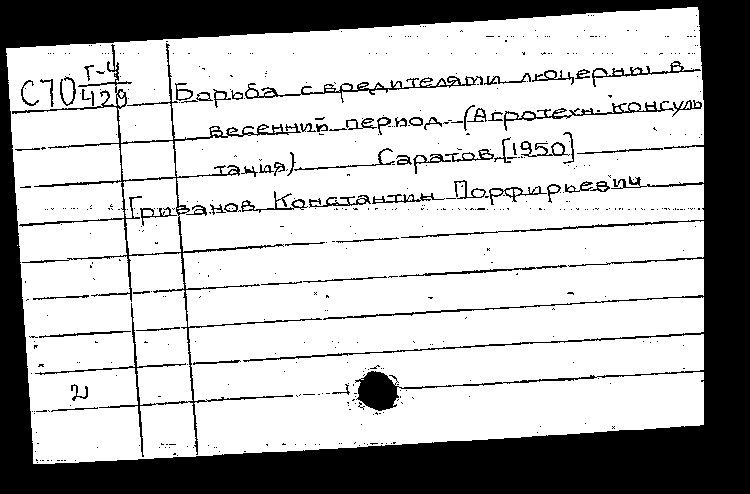 С70 Г-4/429 Борьба с вредителями люцерны в
весенний период. (Агротехн. консуль
тация). Саратов, [1950]
Гриванов, Константин Порфирьевич.